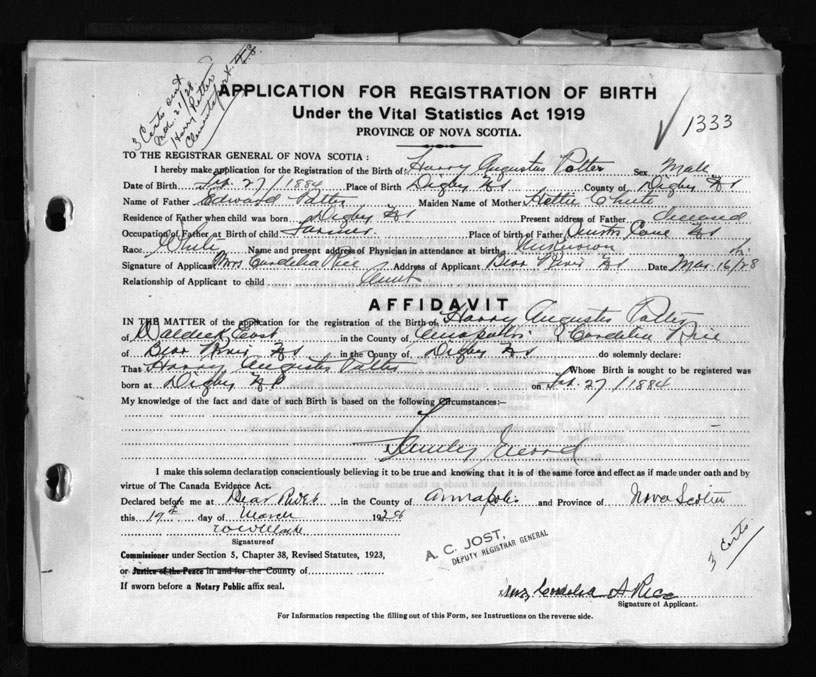 3 Certs sent
Mch 21/28
Harry Potter
Clementsport. N.S.
APPLICATION FOR REGISTRATION OF BIRTH
Under the Vital Statistics Act 1919
PROVINCE OF NOVA SCOTIA.
1333
TO THE REGISTRAR GENERAL OF NOVA SCOTIA :
I hereby make application for the Registration of the Birth of Harry Augustus Potter Sex Male
Date of Birth 27/1884 Place of Birth Digby NS County of Digby NS
Name of Father Edward Potter Maiden Name of Mother Hettie Chute
Residence of Father when child was born Digby NS Present address of Father
Occupation of Father at Birth of child Farmer Place of birth of Father Cove NS
Race White Name and present address of Physician in attendance at birth Unknown
Signature of Applicant Mrs Cordelia Rice Address of Applicant Bear River NS Date Mar 16/28
Relationship of Applicant to child Aunt
AFFIDAVIT
IN THE MATTER of the application for the registration of the Birth of Harry Augustus Potter
of Waldeck East in the County of Annapolis I Cordelia Rice
of Bear River NS in the County of Digby NS do solemnly declare:
That Harry Augustus Potter Whose Birth is sought to be registered was
born at Digby NS on 27/1884
My knowledge of the fact and date of such Birth is based on the following Circumstances:—
Family Record
I make this solemn declaration conscientiously believing it to be true and knowing that it is of the same force and effect as if made under oath and by
virtue of The Canada Evidence Act.
Declared before me at Bear River in the County of Annapolis and Province of Nova Scotia
this 19th day of March 1928
Signature of
Commissioner under Section 5, Chapter 38, Revised Statutes, 1923,
or Justice of the Peace in and for the County of
If sworn before a Notary Public affix seal.
A. C. JOST,
DEPUTY REGISTRAR GENERAL
3 Certs.
Mrs Cordelia A Rice
Signature of Applicant.
For Information respecting the filling out of this Form, see Instructions on the reverse side.